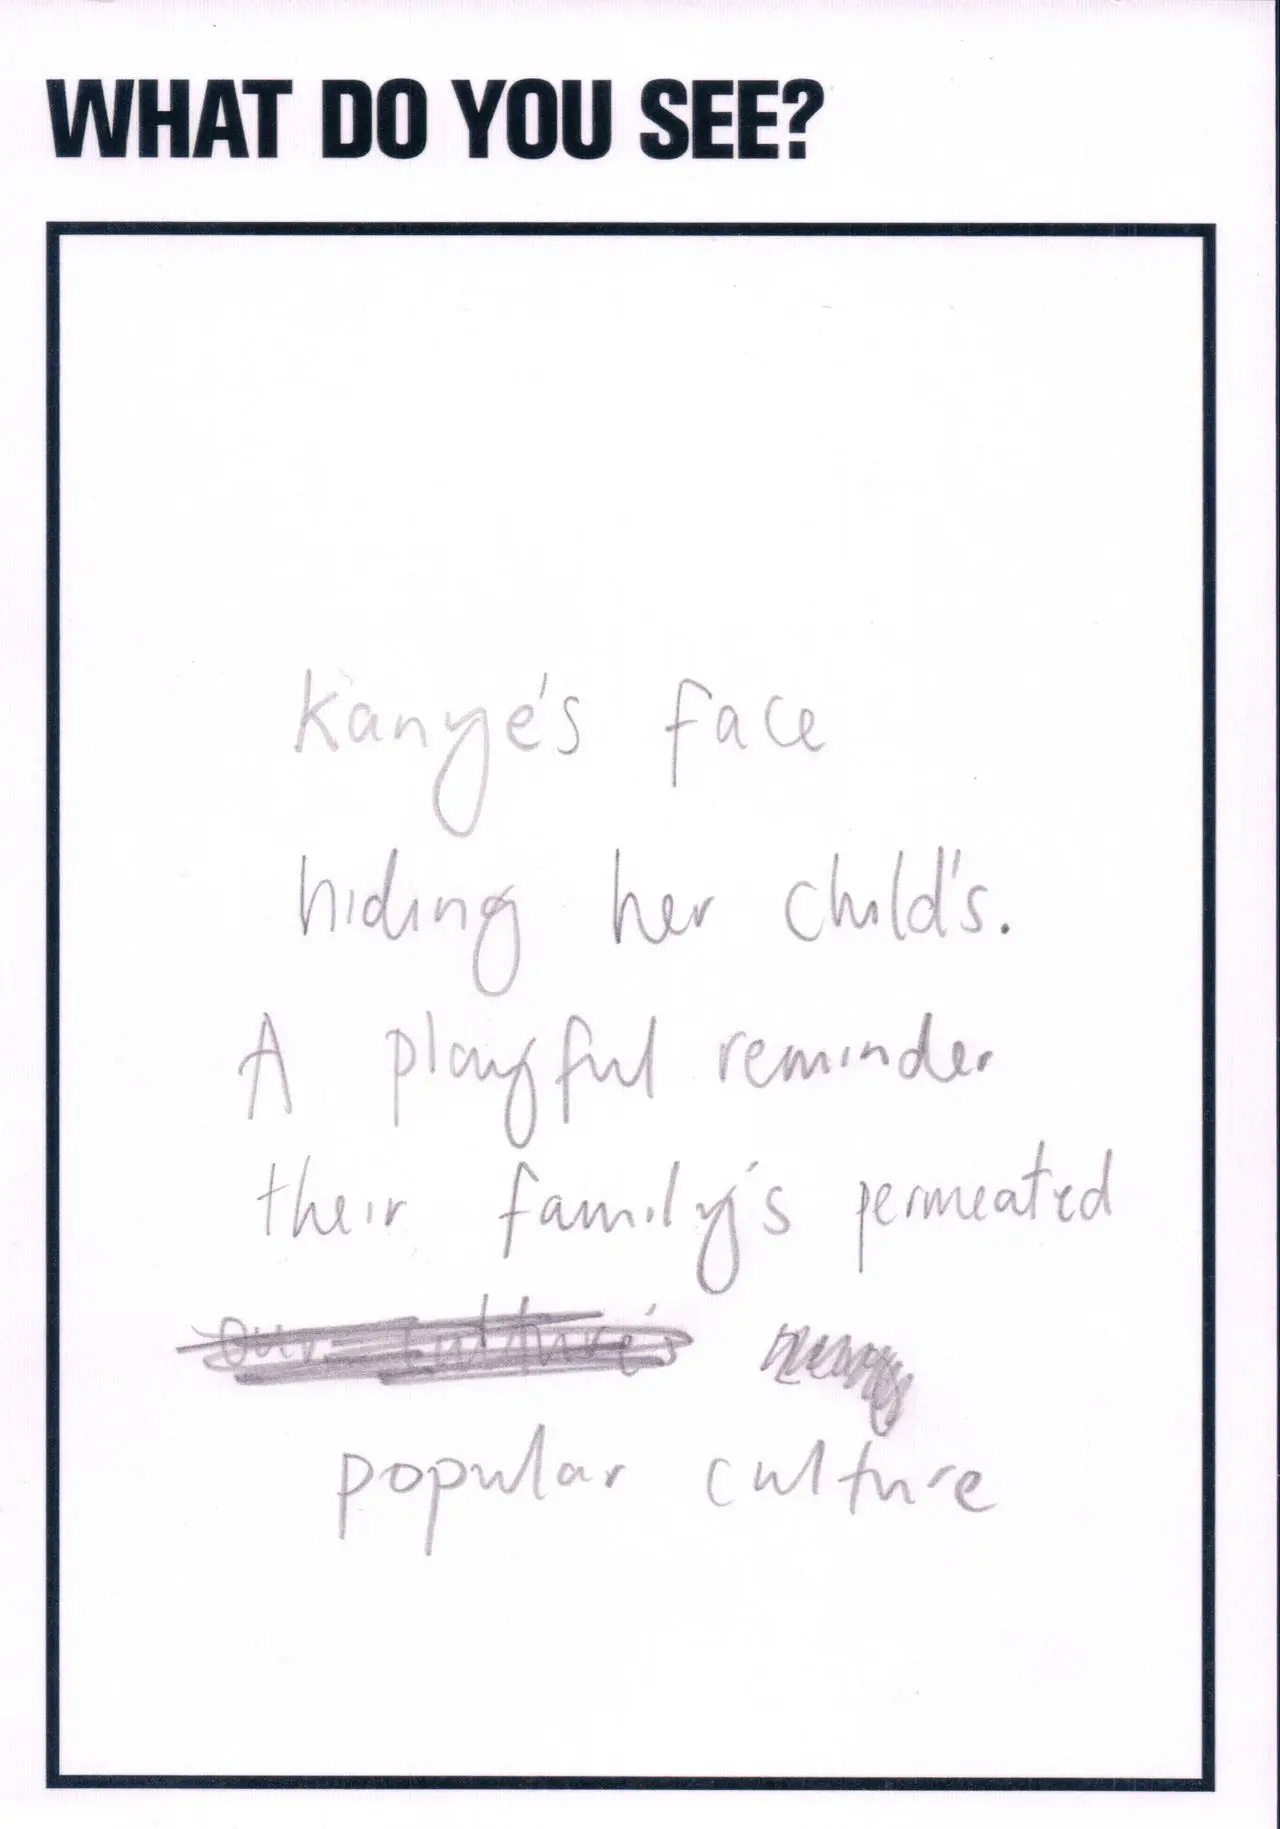 WHAT DO YOU SEE?
Kanye's face
hiding her child's.
A playful reminder
their family's permeated
our culture's
popular culture